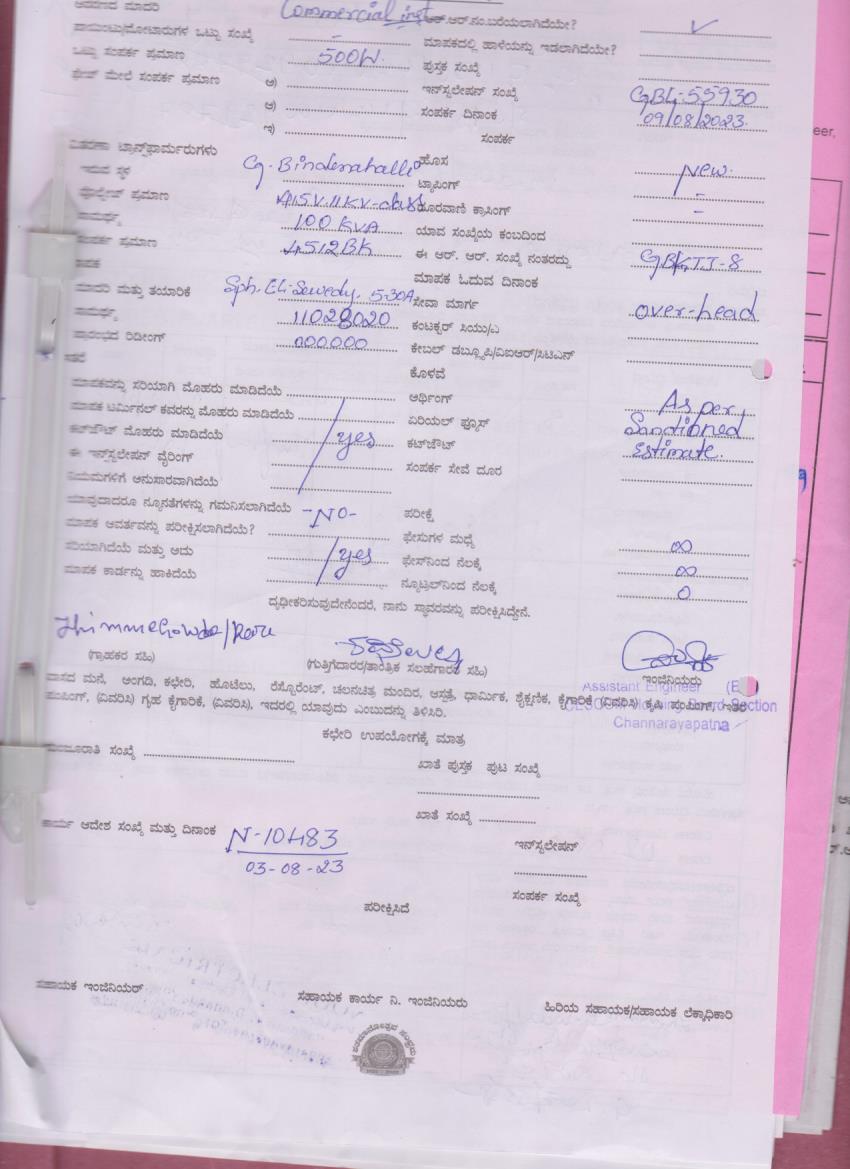 ಮಾದರಿ Commercial inst ಆರ್.ನಂ.ಬರೆಯಲಾಗಿದೆಯೇ? ✓
ಪಾಯಿಂಟು/ಮೋಟಾರುಗಳ ಒಟ್ಟು ಸಂಖ್ಯೆ - ಮಾಪಕದಲ್ಲಿ ಹಾಳೆಯನ್ನು ಇಡಲಾಗಿದೆಯೇ?
ಒಟ್ಟು ಸಂಪರ್ಕ ಪ್ರಮಾಣ 500W. ಪುಸ್ತಕ ಸಂಖ್ಯೆ
ಫೇಸ್ ಮೇಲೆ ಸಂಪರ್ಕ ಪ್ರಮಾಣ ಅ) ಇನ್‌ಸ್ಟಲೇಷನ್ ಸಂಖ್ಯೆ GBL-55930
ಆ) ಸಂಪರ್ಕ ದಿನಾಂಕ 09/08/2023.
ಇ) ಸಂಪರ್ಕ
ವಿತರಣಾ ಟ್ರಾನ್ಸ್‌ಫಾರ್ಮರುಗಳು
ಇರುವ ಸ್ಥಳ ಹೊಸ New.
ವೋಲ್ಟೇಜ್ ಪ್ರಮಾಣ 415V.11KV- ಟ್ಯಾಪಿಂಗ್ -
ಸಾಮರ್ಥ್ಯ 100 KVA ದೂರವಾಣಿ ಕ್ರಾಸಿಂಗ್ -
ಸಂಪರ್ಕ ಪ್ರಮಾಣ ಯಾವ ಸಂಖ್ಯೆಯ ಕಂಬದಿಂದ
ಮಾಪಕ ಈ ಆರ್. ಆರ್. ಸಂಖ್ಯೆ ನಂತರದ್ದು
ಮಾಪಕ ಓದುವ ದಿನಾಂಕ
ಮಾದರಿ ಮತ್ತು ತಯಾರಿಕೆ 5-30A ಸೇವಾ ಮಾರ್ಗ over-head
ಸಾಮರ್ಥ್ಯ 11028020 ಕಂಟಕ್ಟರ್ ಸಿಯು/ಎ
ಪ್ರಾರಂಭದ ರಿಡೀಂಗ್ 000000 ಕೇಬಲ್ ಡಬ್ಲ್ಯೂಪಿ/ವಿಐಆರ್/ಸಿಟಿಎನ್
ಇತರೆ ಕೊಳವೆ
ಮಾಪಕವನ್ನು ಸರಿಯಾಗಿ ಮೊಹರು ಮಾಡಿದೆಯೆ ಅರ್ಥಿಂಗ್ As per
ಮಾಪಕ ಟರ್ಮಿನಲ್ ಕವರನ್ನು ಮೊಹರು ಮಾಡಿದೆಯೆ ಏರಿಯಲ್ ಫ್ಯೂಸ್ Sanctioned
ಕಟ್‌ಔಟ್ ಮೊಹರು ಮಾಡಿದೆಯೆ yes ಕಟ್‌ಔಟ್ Estimate.
ಈ ಇನ್‌ಸ್ಟಲೇಷನ್ ವೈರಿಂಗ್ ಸಂಪರ್ಕ ಸೇವೆ ದೂರ
ನಿಯಮಗಳಿಗೆ ಅನುಸಾರವಾಗಿದೆಯೆ
ಯಾವುದಾದರೂ ನ್ಯೂನತೆಗಳನ್ನು ಗಮನಿಸಲಾಗಿದೆಯೆ -NO- ಪರೀಕ್ಷೆ
ಮಾಪಕ ಆವರ್ತವನ್ನು ಪರೀಕ್ಷಿಸಲಾಗಿದೆಯೆ? ಫೇಸುಗಳ ಮಧ್ಯೆ ∞
ಸರಿಯಾಗಿದೆಯೆ ಮತ್ತು ಅದು yes ಫೇಸ್‌ನಿಂದ ನೆಲಕ್ಕೆ ∞
ಮಾಪಕ ಕಾರ್ಡನ್ನು ಹಾಕಿದೆಯೆ ನ್ಯೂಟ್ರಲ್‌ನಿಂದ ನೆಲಕ್ಕೆ 0
ದೃಢೀಕರಿಸುವುದೇನೆಂದರೆ, ನಾನು ಸ್ಥಾವರವನ್ನು ಪರೀಕ್ಷಿಸಿದ್ದೇನೆ.
(ಗ್ರಾಹಕರ ಸಹಿ) (ಗುತ್ತಿಗೆದಾರರ/ತಾಂತ್ರಿಕ ಸಲಹೆಗಾರರ ಸಹಿ) ಇಂಜಿನಿಯರು
Assistant Engineer (E
ವಾಸದ ಮನೆ, ಅಂಗಡಿ, ಕಛೇರಿ, ಹೊಟೇಲು, ರೆಸ್ಟೋರೆಂಟ್, ಚಲನಚಿತ್ರ ಮಂದಿರ, ಆಸ್ಪತ್ರೆ, ಧಾರ್ಮಿಕ, ಶೈಕ್ಷಣಿಕ, ಕೈಗಾರಿಕೆ (ವಿವರಿಸಿ) ಕೃಷಿ ಪಂಪಿಂಗ್, ಇತರೆ
ಪಂಪಿಂಗ್, (ವಿವರಿಸಿ) ಗೃಹ ಕೈಗಾರಿಕೆ, (ವಿವರಿಸಿ), ಇದರಲ್ಲಿ ಯಾವುದು ಎಂಬುದನ್ನು ತಿಳಿಸಿರಿ.
Section
Channarayapatna
ಕಛೇರಿ ಉಪಯೋಗಕ್ಕೆ ಮಾತ್ರ
ಮಂಜೂರಾತಿ ಸಂಖ್ಯೆ ಖಾತೆ ಪುಸ್ತಕ ಪುಟ ಸಂಖ್ಯೆ
ಖಾತೆ ಸಂಖ್ಯೆ
ಕಾರ್ಯ ಆದೇಶ ಸಂಖ್ಯೆ ಮತ್ತು ದಿನಾಂಕ N-10483 ಇನ್‌ಸ್ಟಲೇಷನ್
03-08-23
ಸಂಪರ್ಕ ಸಂಖ್ಯೆ
ಪರೀಕ್ಷಿಸಿದೆ
ಸಹಾಯಕ ಇಂಜಿನಿಯರ್ ಸಹಾಯಕ ಕಾರ್ಯ ನಿ. ಇಂಜಿನಿಯರು ಹಿರಿಯ ಸಹಾಯಕ/ಸಹಾಯಕ ಲೆಕ್ಕಾಧಿಕಾರಿ